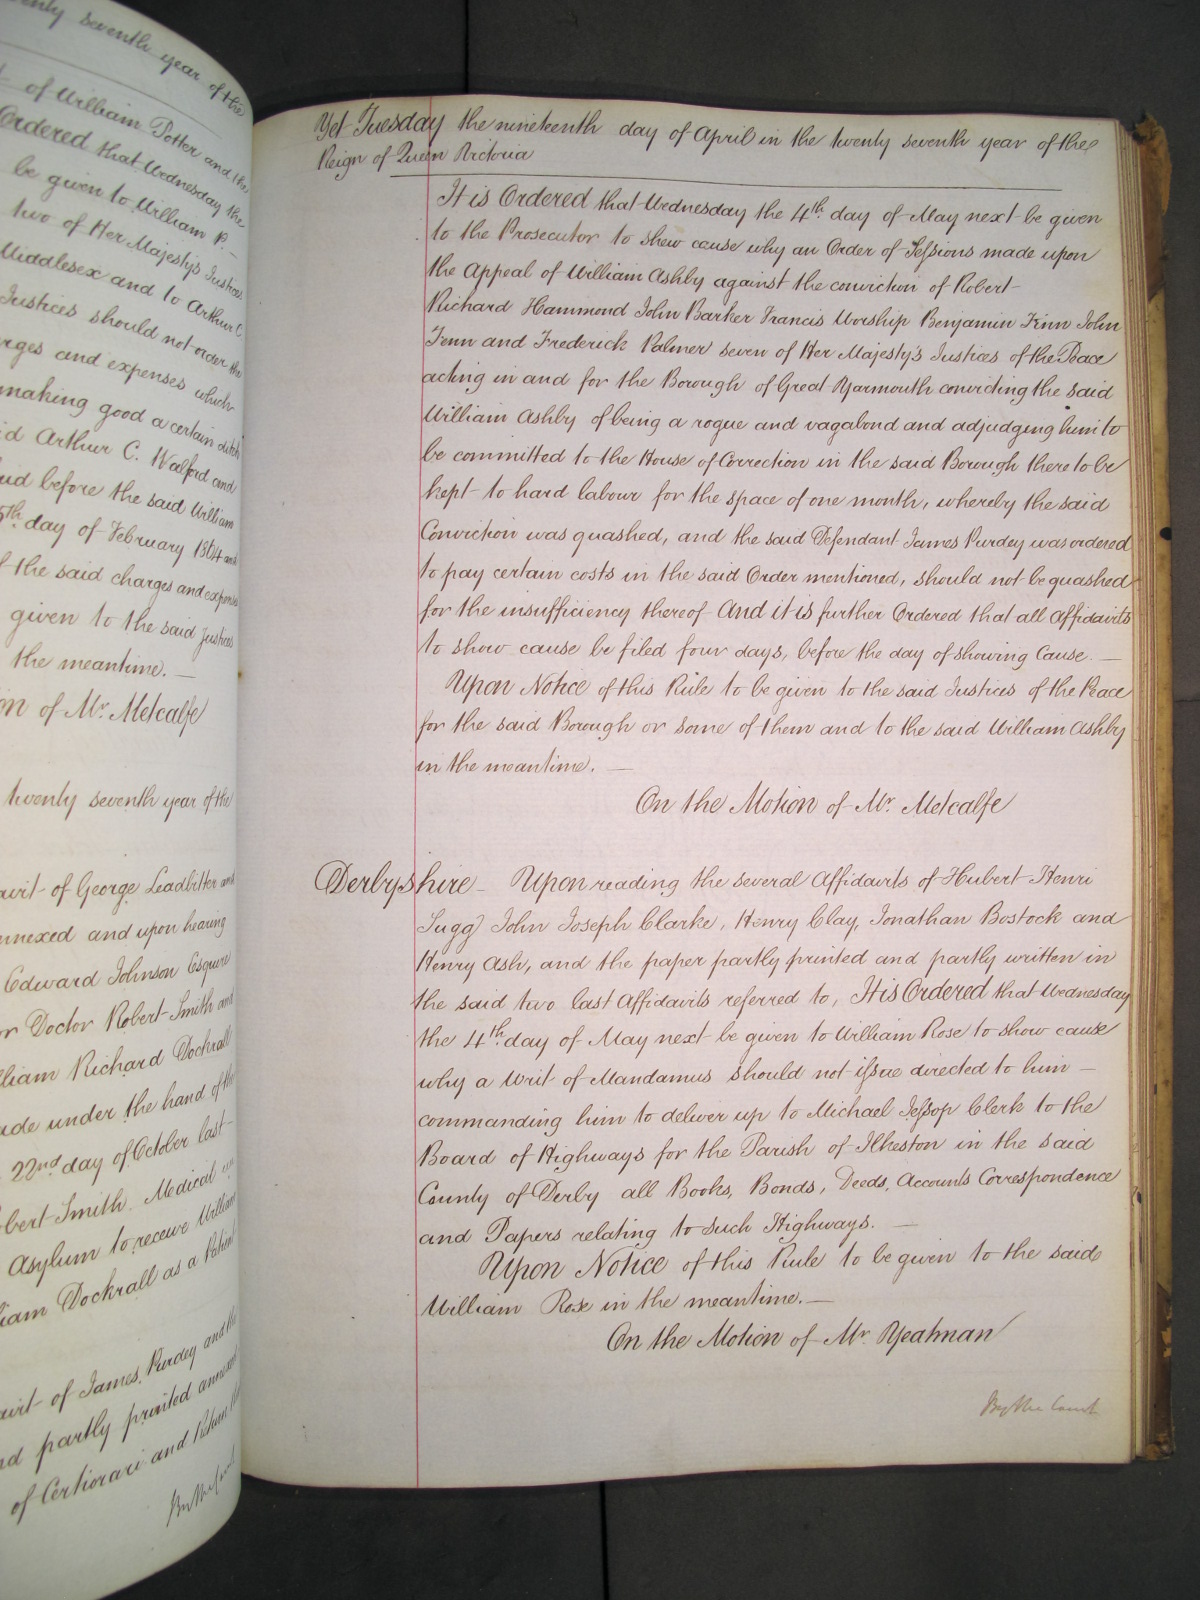 enty seventh year of the
of William Potter and the
Ordered that Wednesday the
be given to William P.
two of Her Majesty's Justices
Middlesex and to Arthur C.
Justices should not order the
rges and expenses which
making good a certain ditch
id Arthur C. Walford and
aid before the said William
5th day of February 1864 and
f the said charges and expenses
given to the said Justices
the meantime. —
n of Mr. Metcalfe
twenty seventh year of the
avit of George Leadbitter and
nnexed and upon hearing
Edward Johnson Esquire
or Doctor Robert Smith and
lliam Richard Dockrall
ade under the hand of the
22nd day of October last
obert Smith Medical
Asylum to receive William
liam Dockrall as a Patient
avit of James Purdey and the
nd partly printed annexed
of Certiorari and Return
By the Court
Yet Tuesday the nineteenth day of April in the twenty seventh year of the
Reign of Queen Victoria
It is Ordered that Wednesday the 4th day of May next be given
to the Prosecutor to shew cause why an Order of Sessions made upon
the Appeal of William Ashby against the conviction of Robert
Richard Hammond John Barker Francis Worship Benjamin Fenn John
Fenn and Frederick Palmer seven of Her Majesty's Justices of the Peace
acting in and for the Borough of Great Yarmouth convicting the said
William Ashby of being a rogue and vagabond and adjudging him to
be committed to the House of Correction in the said Borough there to be
kept to hard labour for the space of one month, whereby the said
Conviction was quashed, and the said Defendant James Purdey was ordered
to pay certain costs in the said Order mentioned, should not be quashed
for the insufficiency thereof And it is further Ordered that all Affidavits
to show cause be filed four days, before the day of showing Cause. —
Upon Notice of this Rule to be given to the said Justices of the Peace
for the said Borough or some of them and to the said William Ashby
in the meantime. —
On the Motion of Mr. Metcalfe
Derbyshire – Upon reading the several Affidavits of Hubert Henri
Sugg John Joseph Clarke, Henry Clay, Jonathan Bostock and
Henry Ash, and the paper partly printed and partly written in
the said two last Affidavits referred to, It is Ordered that Wednesday
the 4th day of May next be given to William Rose to show cause
why a Writ of Mandamus should not issue directed to him –
commanding him to deliver up to Michael Jessop Clerk to the
Board of Highways for the Parish of Ilkeston in the said
County of Derby all Books, Bonds, Deeds, Accounts Correspondence
and Papers relating to such Highways. —
Upon Notice of this Rule to be given to the said
William Rose in the meantime. —
On the Motion of Mr. Yeatman
By the Court